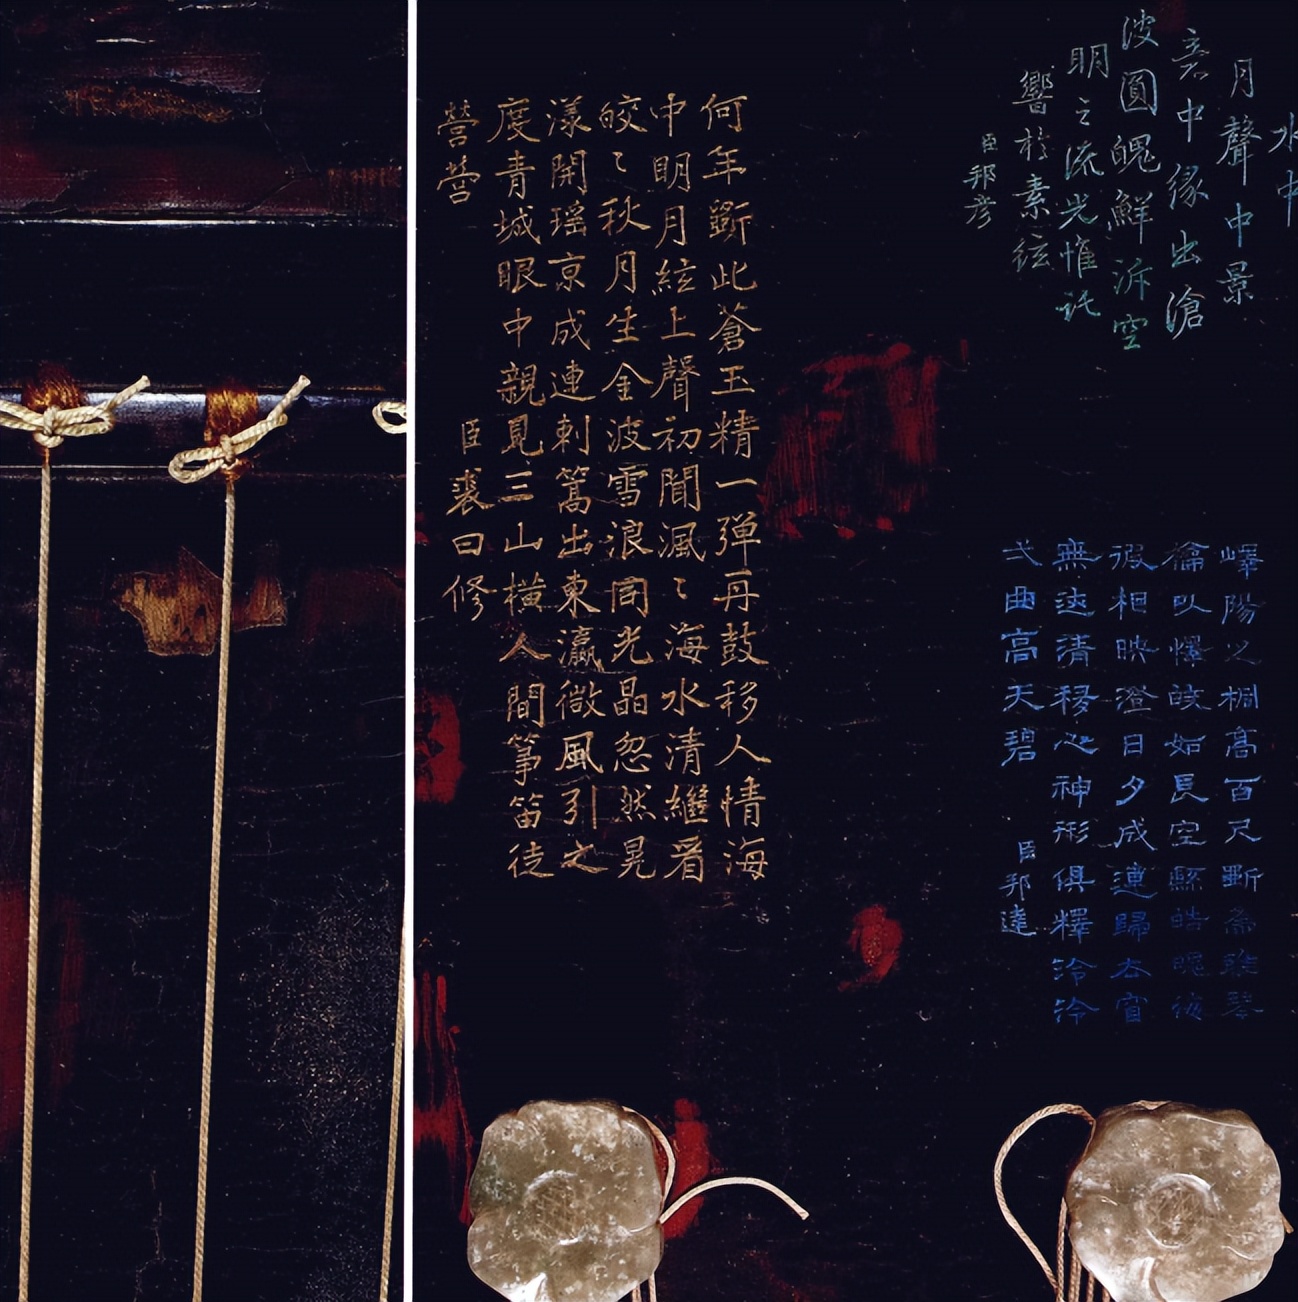 水中
月聲中景
中緣出滄
波圓魄鮮泝空
明之流光惟託
響於素絃
臣邦彥
嶧陽之桐高百尺斲為雅琴
以懌皎如長空縣皓魄
相映澄日夕成連歸去窅
無迹清移心神形俱釋泠泠
弌曲高天碧
臣邦達
何年斲此蒼玉精一彈再鼓移人情海
中明月絃上聲初聞渢〻海水清繼看
皎〻秋月生金波雪浪同光晶忽然晃
漾開瑤京成連刺篙出東瀛微風引之
度青城眼中親見三山橫人間箏笛徒
營營
臣裘曰修